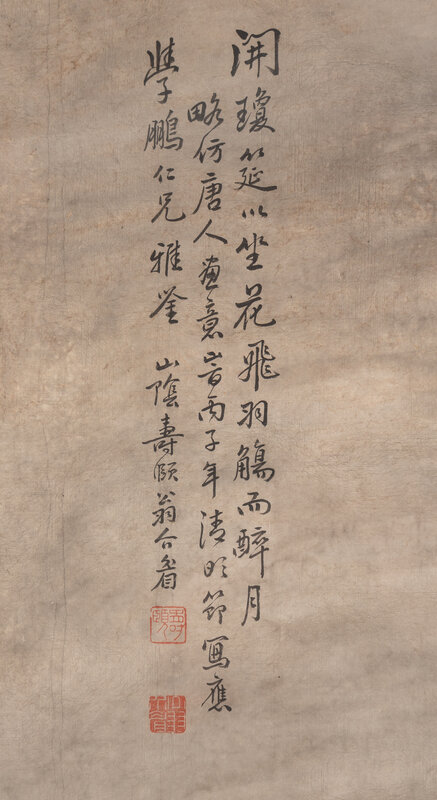 開瓊筵以坐花飛羽觴而醉月
略仿唐人畫意旹丙子年清明節寫應
學鵬仁兄雅鉴 山陰壽頤翁介眉
壽頤